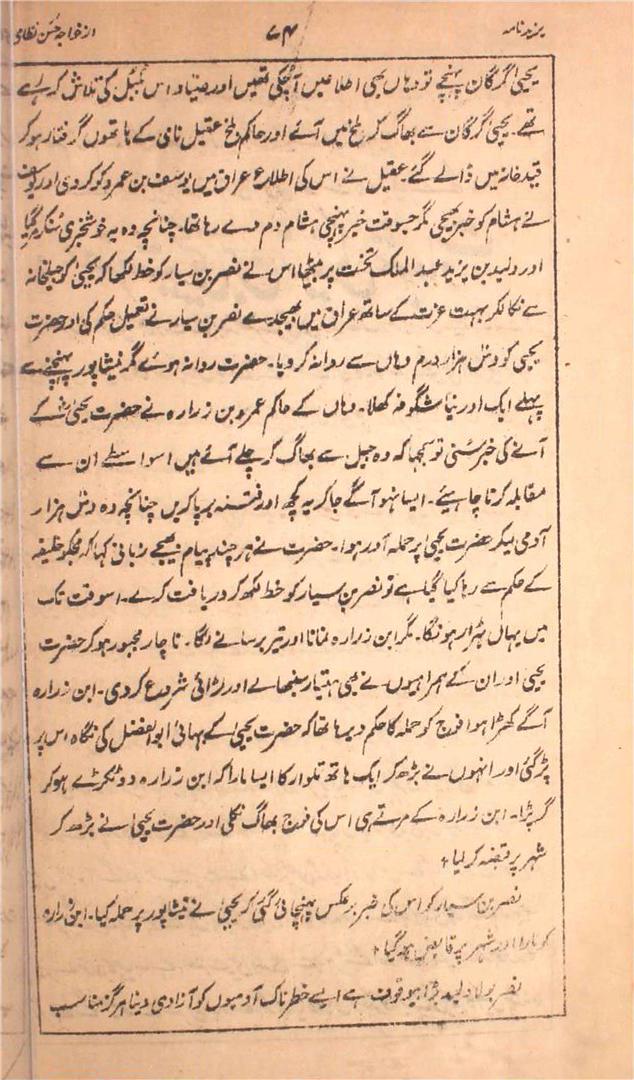 یزید نامہ ۷۴ از خواجہ حسن نظامی
یحییٰ گرگان پہنچے تو وہاں بھی اطلاعیں آچکی تھیں اور صیاد اس بلبل کی تلاش کر رہے
تھے۔ یحییٰ گرگان سے بھاگ کر بلخ میں آئے اور حاکم بلخ عقیل نامی کے ہاتھوں گرفتار ہو کر
قید خانہ میں ڈالے گئے۔ عقیل نے اس کی اطلاع عراق میں یوسف بن عمرو کو کر دی اور یوسف
نے ہشام کو خبر بھیجی مگر جسوقت خبر پہنچی ہشام دم دے رہا تھا۔ چنانچہ وہ یہ خوشخبری سنکر مر گیا
اور ولید بن یزید عبد الملک تخت پر بیٹھا اس نے نصر بن سیار کو خط لکھا کہ یحییٰ کو جیلخانہ
سے نکالکر بہت عزت کے ساتھ عراق میں بھیجدے نصر بن سیار نے تعمیل حکم کی اور حضرت
یحییٰ کو دس ہزار درم وہاں سے روانہ کر دیا۔ حضرت روانہ ہوئے مگر نیشاپور پہنچنے سے
پہلے ایک اور نیا شگوفہ کھلا۔ وہاں کے حاکم عمرو بن زرارہ نے حضرت یحییٰ کے
آنے کی خبر سُنی تو سمجھا کہ وہ جیل سے بھاگ کر چلے آئے ہیں اسواسطے ان سے
مقابلہ کرنا چاہیئے۔ ایسا نہو آگے جا کر یہ کچھ اور فتنہ برپا کریں چنانچہ وہ دس ہزار
آدمی لیکر حضرت یحییٰ پر حملہ آور ہوا۔ حضرت نے ہر چند پیام بھیجے زبانی کہا کہ مجکو خلیفہ
کے حکم سے رہا کیا گیا ہے تو نصر بن سیار کو خط لکھ کر دریافت کرلے۔ اسوقت تک
میں یہاں ٹہرا رہونگا۔ مگر ابن زرارہ نمانا اور تیر برسانے لگا۔ ناچار مجبور ہو کر حضرت
یحییٰ اور ان کے ہمراہیوں نے بھی ہتیار سنبھالے اور لڑائی شروع کر دی۔ ابن زرارہ
آگے کھڑا ہوا فوج کو حملہ کا حکم دیرہا تھا کہ حضرت یحییٰ کے بھائی ابو الفضل کی نگاہ اس پر
پڑ گئی اور انہوں نے بڑھ کر ایک ہاتھ تلوار کا ایسا مارا کہ ابن زرارہ دو ٹکڑے ہو کر
گر پڑا۔ ابن زرارہ کے مرتے ہی اس کی فوج بھاگ نکلی اور حضرت یحییٰ نے بڑھ کر
شہر پر قبضہ کر لیا ٭
نصر بن سیار کو اس کی خبر برعکس پہنچائی گئی کہ یحییٰ نے نیشاپور پر حملہ کیا۔ ابن زرارہ
کو مارا اور شہر پر قابض ہو گیا ٭
نصر بولا ولید بڑا بیوقوف ہے ایسے خطرناک آدمیوں کو آزادی دینا ہرگز مناسب